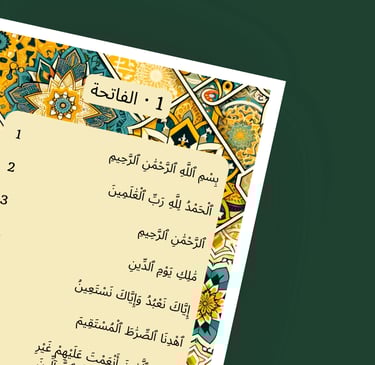 1 · الفاتحة
بِسْمِ ٱللَّهِ ٱلرَّحْمَٰنِ ٱلرَّحِيمِ 1
ٱلْحَمْدُ لِلَّهِ رَبِّ ٱلْعَٰلَمِينَ 2
ٱلرَّحْمَٰنِ ٱلرَّحِيمِ 3
مَٰلِكِ يَوْمِ ٱلدِّينِ
إِيَّاكَ نَعْبُدُ وَإِيَّاكَ نَسْتَعِينُ
ٱهْدِنَا ٱلصِّرَٰطَ ٱلْمُسْتَقِيمَ
أَنْعَمْتَ عَلَيْهِمْ غَيْرِ